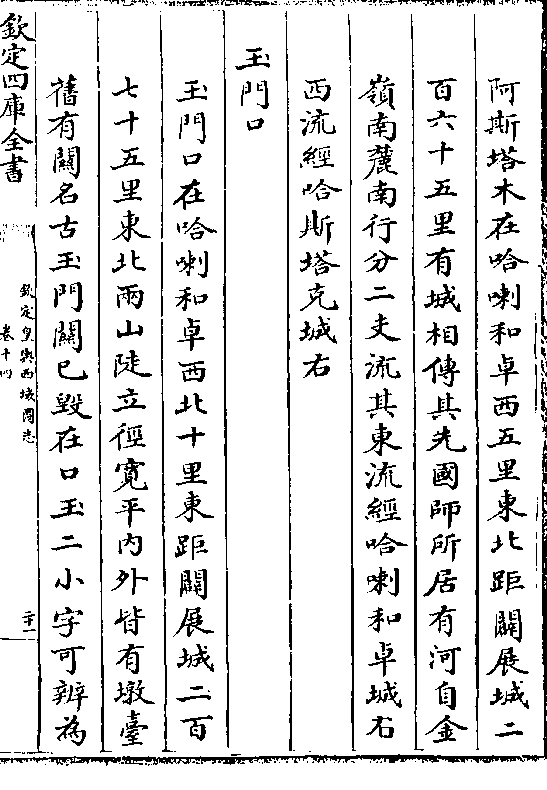 阿斯塔木在哈喇和卓西五里東北距闢展城二
百六十五里有城相傳其先國師所居有河自金
嶺南麓南行分二支流其東流經哈喇和卓城右
西流經哈斯塔克城右
玉門口
玉門口在哈喇和卓西北十里東距闢展城二百
七十五里東北兩山陡立徑寬平内外皆有墩臺
舊有闗名古玉門闗已毀在口玉二小字可辨為
欽定四庫全書
欽定皇輿西域圖志
卷十四
二十一